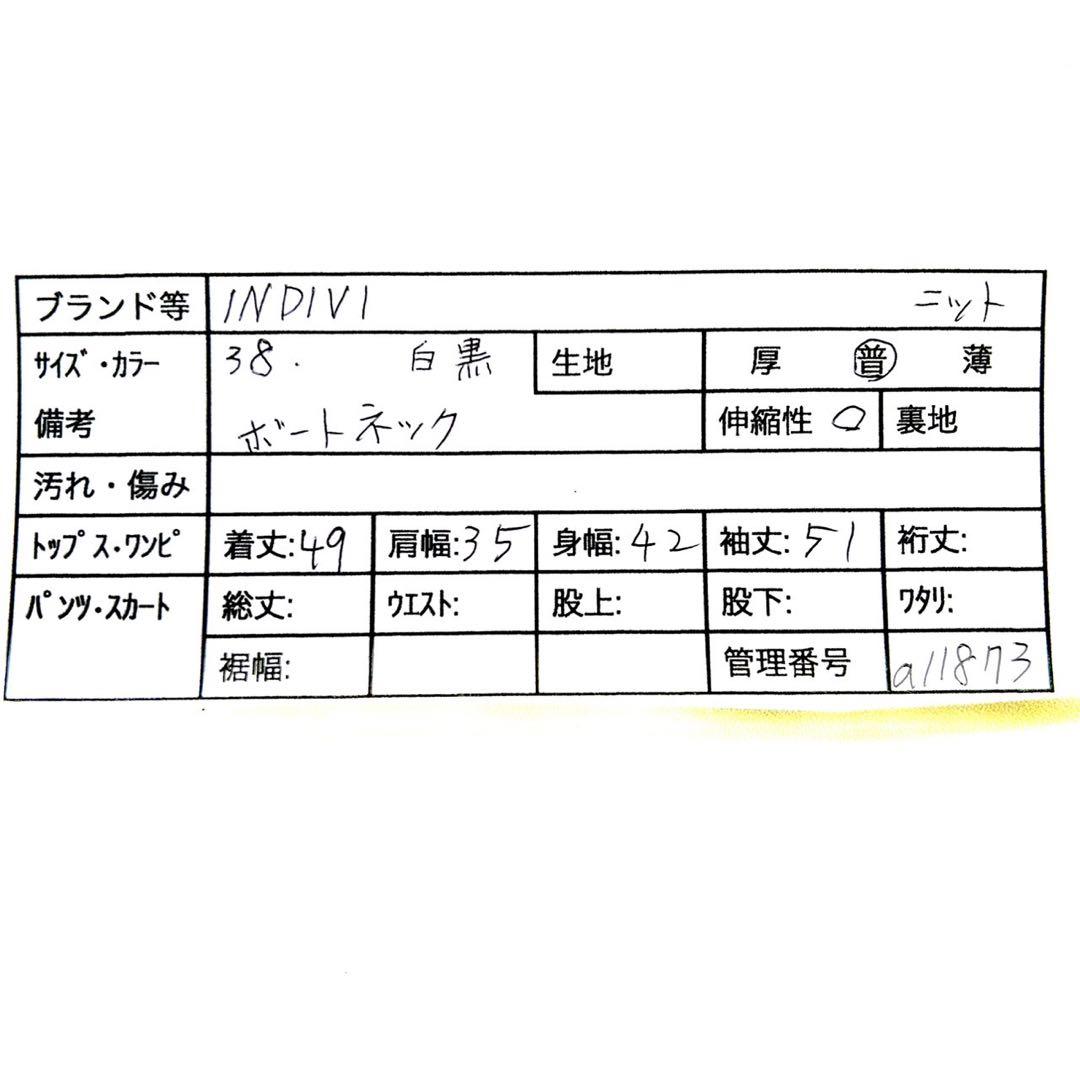 ブランド等 INDIVI ニット
サイズ・カラー 38. 白黒 生地 厚 普 薄
備考 ボートネック 伸縮性 ○ 裏地
汚れ・傷み
トップス・ワンピ 着丈:49 肩幅:35 身幅:42 袖丈:51 裄丈:
パンツ・スカート 総丈: ウエスト: 股上: 股下: ワタリ:
裾幅: 管理番号 a11873